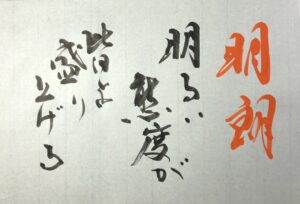 明朗
明るい
態度が
皆を
盛り
上げる